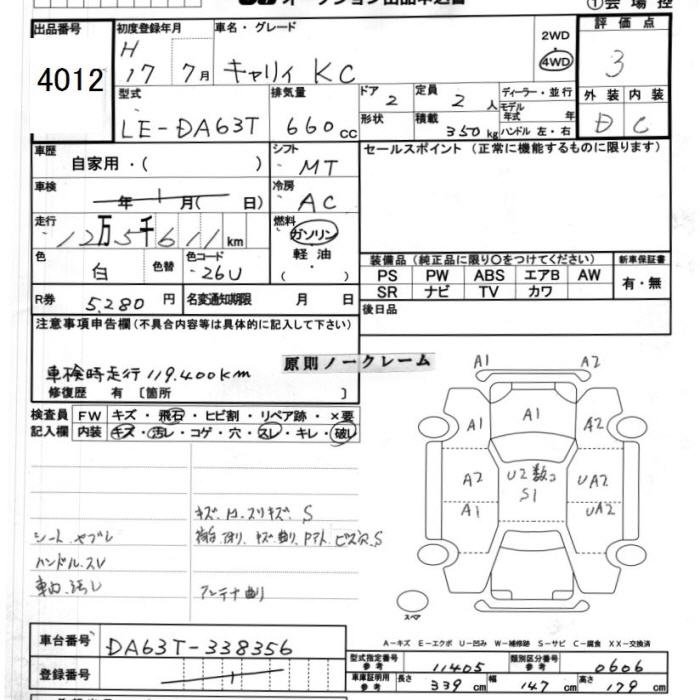 オークション出品申込書 ①会場控
出品番号 4012
初度登録年月 H 17 7月
車名・グレード キャリィ KC
2WD 4WD
評価点 3
型式 LE-DA63T
排気量 660cc
ドア 2 定員 2人
形状 積載 350kg
ディーラー・並行
モデル年式 年
ハンドル 左・右
外装 D 内装 C
車歴 自家用・( )
シフト MT
セールスポイント(正常に機能するものに限ります)
車検 年 月( 日)
冷房 AC
走行 12万5千611km
燃料 ガソリン・軽油・( )
色 白 色替 色コード 26U
装備品(純正品に限り○をつけてください) 新車保証書
PS PW ABS エアB AW 有・無
SR ナビ TV カワ
R券 5,280円 名変通知期限 月 日
後日品
注意事項申告欄(不具合内容等は具体的に記入して下さい)
原則ノークレーム
車検時走行 119.400km
修復歴 有 〔箇所 〕
検査員記入欄 FW キズ・飛石・ヒビ割・リペア跡・×要
内装 キズ・汚レ・コゲ・穴・スレ・キレ・破レ
A1 A2
A1 A1 A2
A2 U2数コ S1 UA2
A1 UA2
キズ、凹、スリキズ、S
シート、ヤブレ
ハンドル、スレ
車内、汚レ アンテナ曲り
スペア
車台番号 DA63T-338356
A-キズ E-エクボ U-凹み W-補修跡 S-サビ C-腐食 XX-交換済
型式指定番号 参考 11405 類別区分番号 参考 0606
登録番号
車庫証明用 参考 長さ 339cm 幅 147cm 高さ 179cm